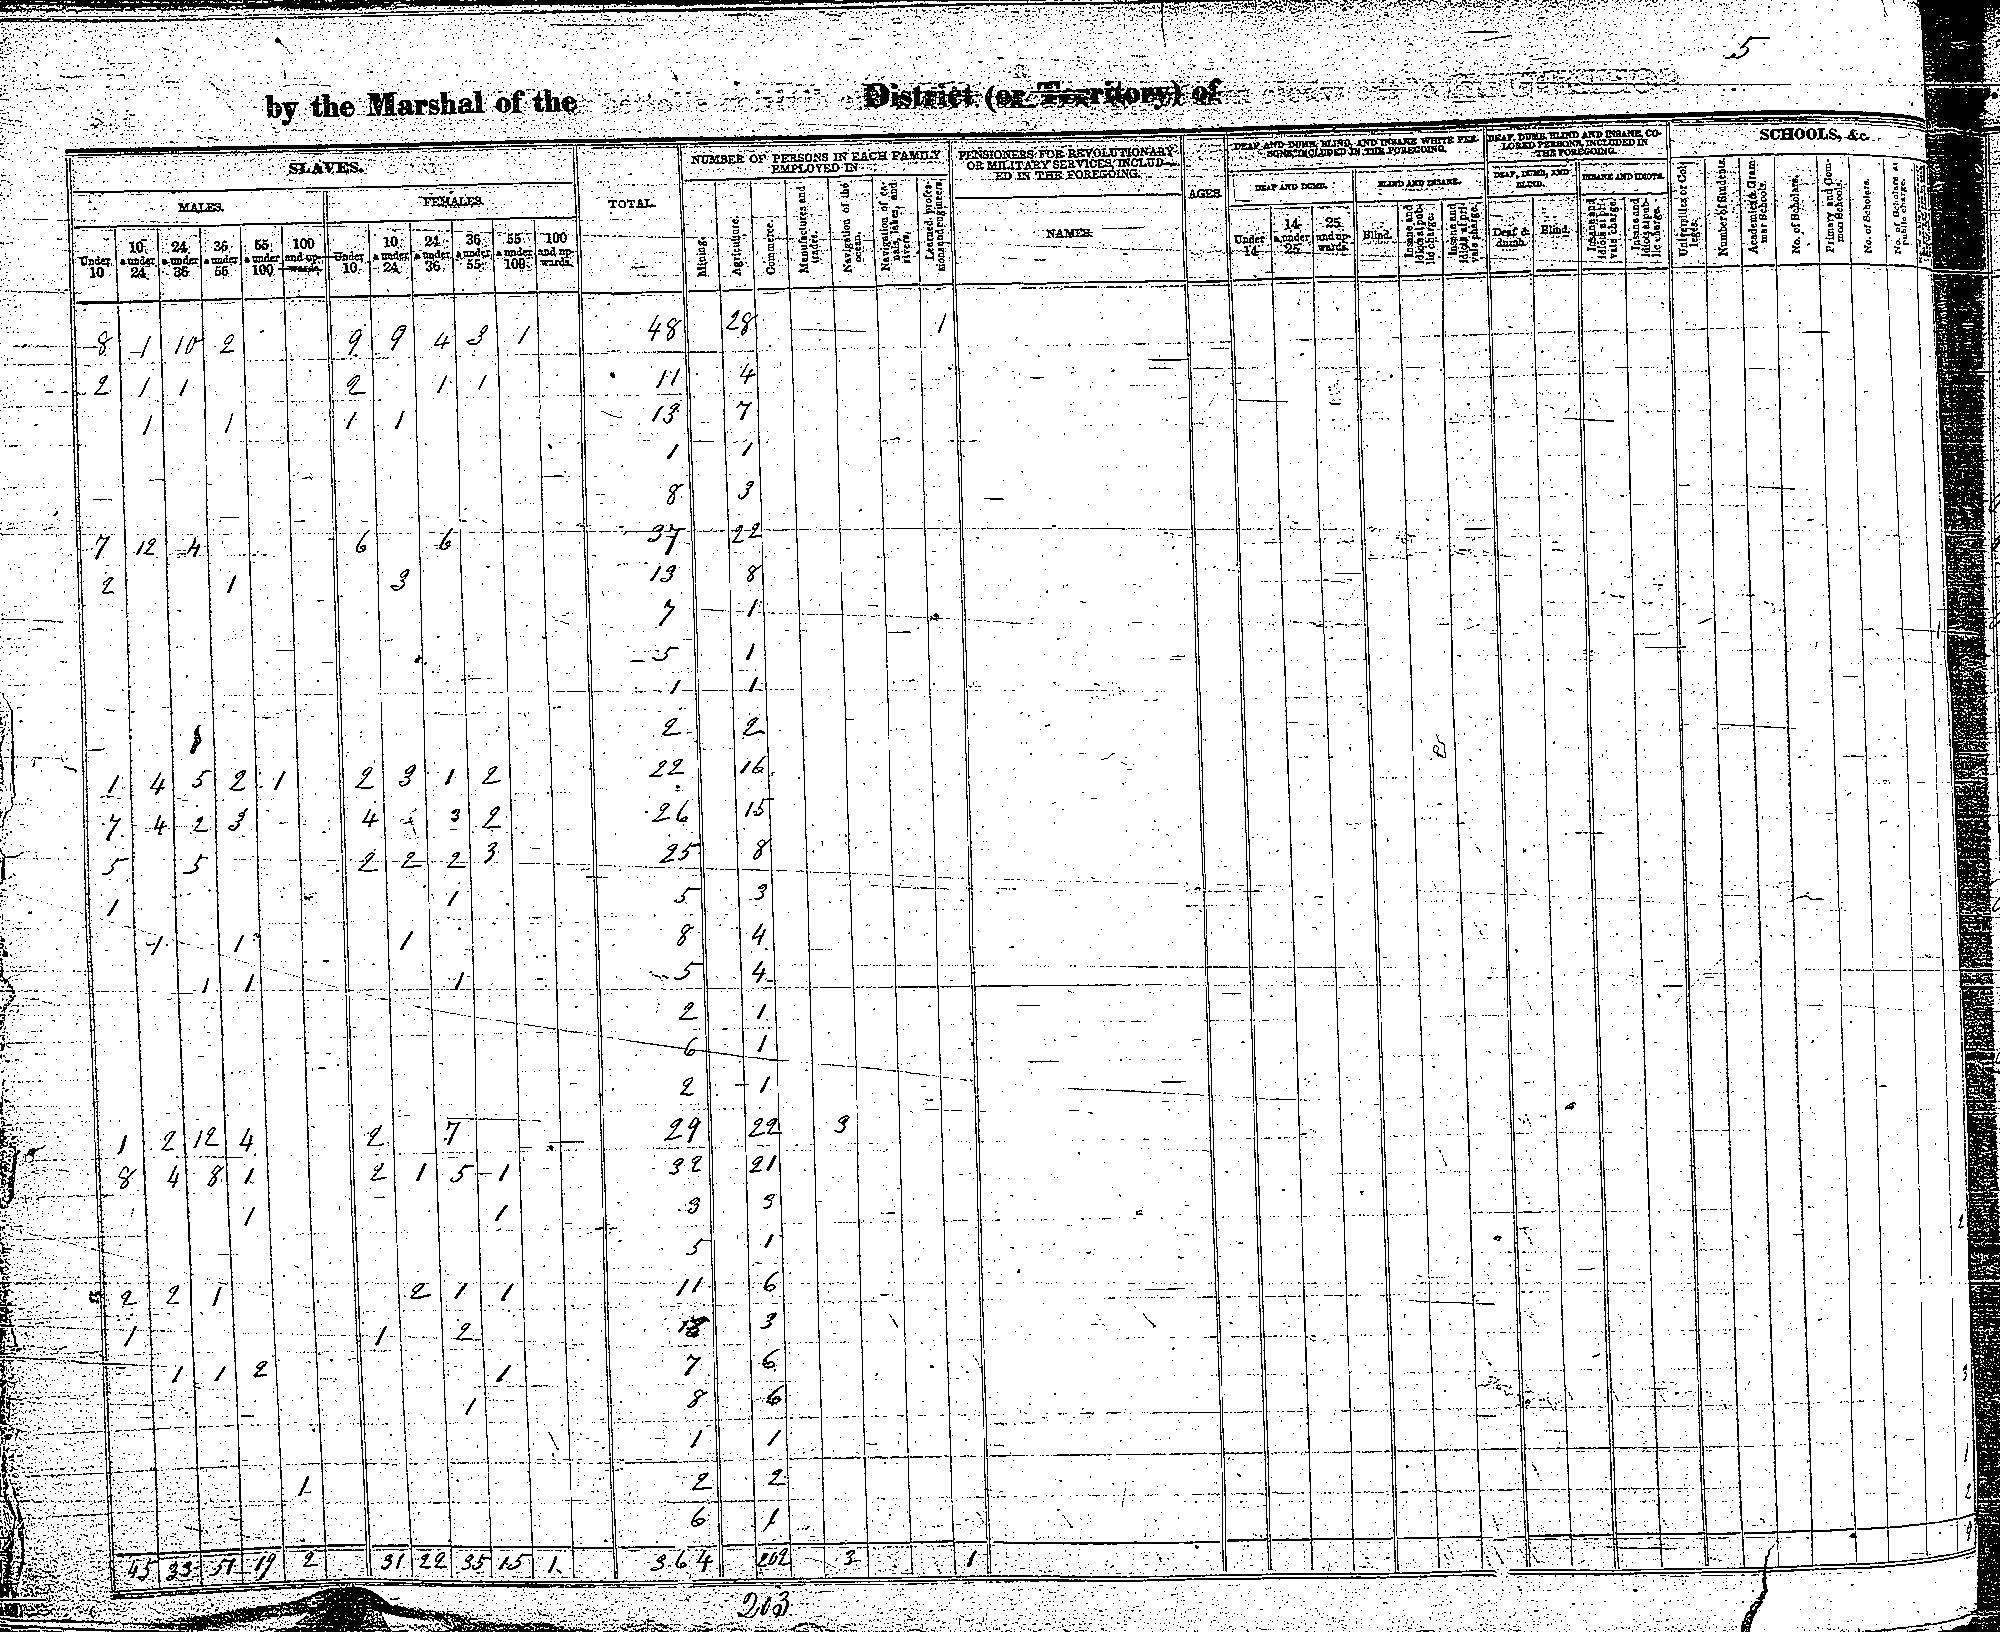 5
by the Marshal of the District (or Territory) of
SLAVES. TOTAL. NUMBER OF PERSONS IN EACH FAMILY EMPLOYED IN PENSIONERS FOR REVOLUTIONARY OR MILITARY SERVICES INCLUDED IN THE FOREGOING. AGES. DEAF AND DUMB, BLIND, AND INSANE WHITE PERSONS, INCLUDED IN THE FOREGOING. DEAF, DUMB, BLIND AND INSANE, COLORED PERSONS, INCLUDED IN THE FOREGOING. SCHOOLS, &c.
MALES. FEMALES. NAMES. DEAF AND DUMB. BLIND AND INSANE. DEAF, DUMB, AND BLIND. INSANE AND IDIOTS.
Under 10 10 & under 24 24 & under 36 36 & under 55 55 & under 100 100 and upwards. Under 10 10 & under 24 24 & under 36 36 & under 55 55 & under 100 100 and upwards. Mining. Agriculture. Commerce. Manufactures and trades. Navigation of the ocean. Navigation of canals, lakes, and rivers. Learned professions and engineers. Under 14 14 & under 25 25 and upwards Blind. Insane and idiots at public charge. Insane and idiots at private charge. Deaf & dumb. Blind. Insane and idiots at private charge. Insane and idiots at public charge. Universities or Colleges. Number of Students. Academies & Grammar Schools. No. of Scholars. Primary and Common Schools. No. of Scholars. No. of Scholars at public charge.
8 1 10 2 9 9 4 3 1 48 28 1
2 1 1 2 1 1 11 4
1 1 1 1 13 7
1 1
8 3
7 12 4 6 6 37 22
2 1 3 13 8
7 1
5 1
1 1
2 2
1 4 5 2 1 2 3 1 2 22 16
7 4 2 3 4 3 2 26 15
5 5 2 2 2 3 25 8
1 1 5 3
1 1 1 8 4
1 1 1 5 4
2 1
6 1
2 1
1 2 12 4 2 7 29 22 3
8 4 8 1 2 1 5 1 32 21
1 1 3 3
5 1
2 2 1 2 1 1 11 6
1 1 2 3
1 1 2 1 7 6
1 8 6
1 1
1 2 2
6 1
45 33 51 19 2 31 22 35 15 1 364 202 3 1
203